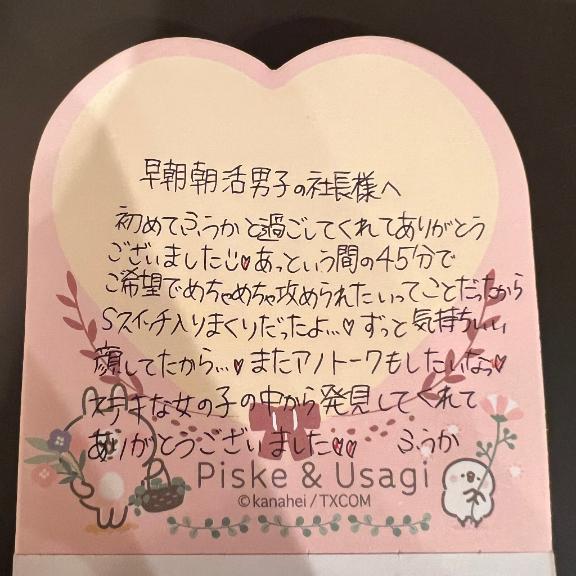 早朝朝活男子の社長様へ
初めてふうかと過ごしてくれてありがとう
ございました♥あっという間の45分で
ご希望でめちゃめちゃ攻められたいってことだったから
Sスイッチ入りまくりだったよ...♡ずっと気持ちいい
顔してたから...♥またアノトークもしたいなっ♥
ステキな女の子の中から発見してくれて
ありがとうございました♥♥ ふうか
Piske & Usagi
©kanahei / TXCOM